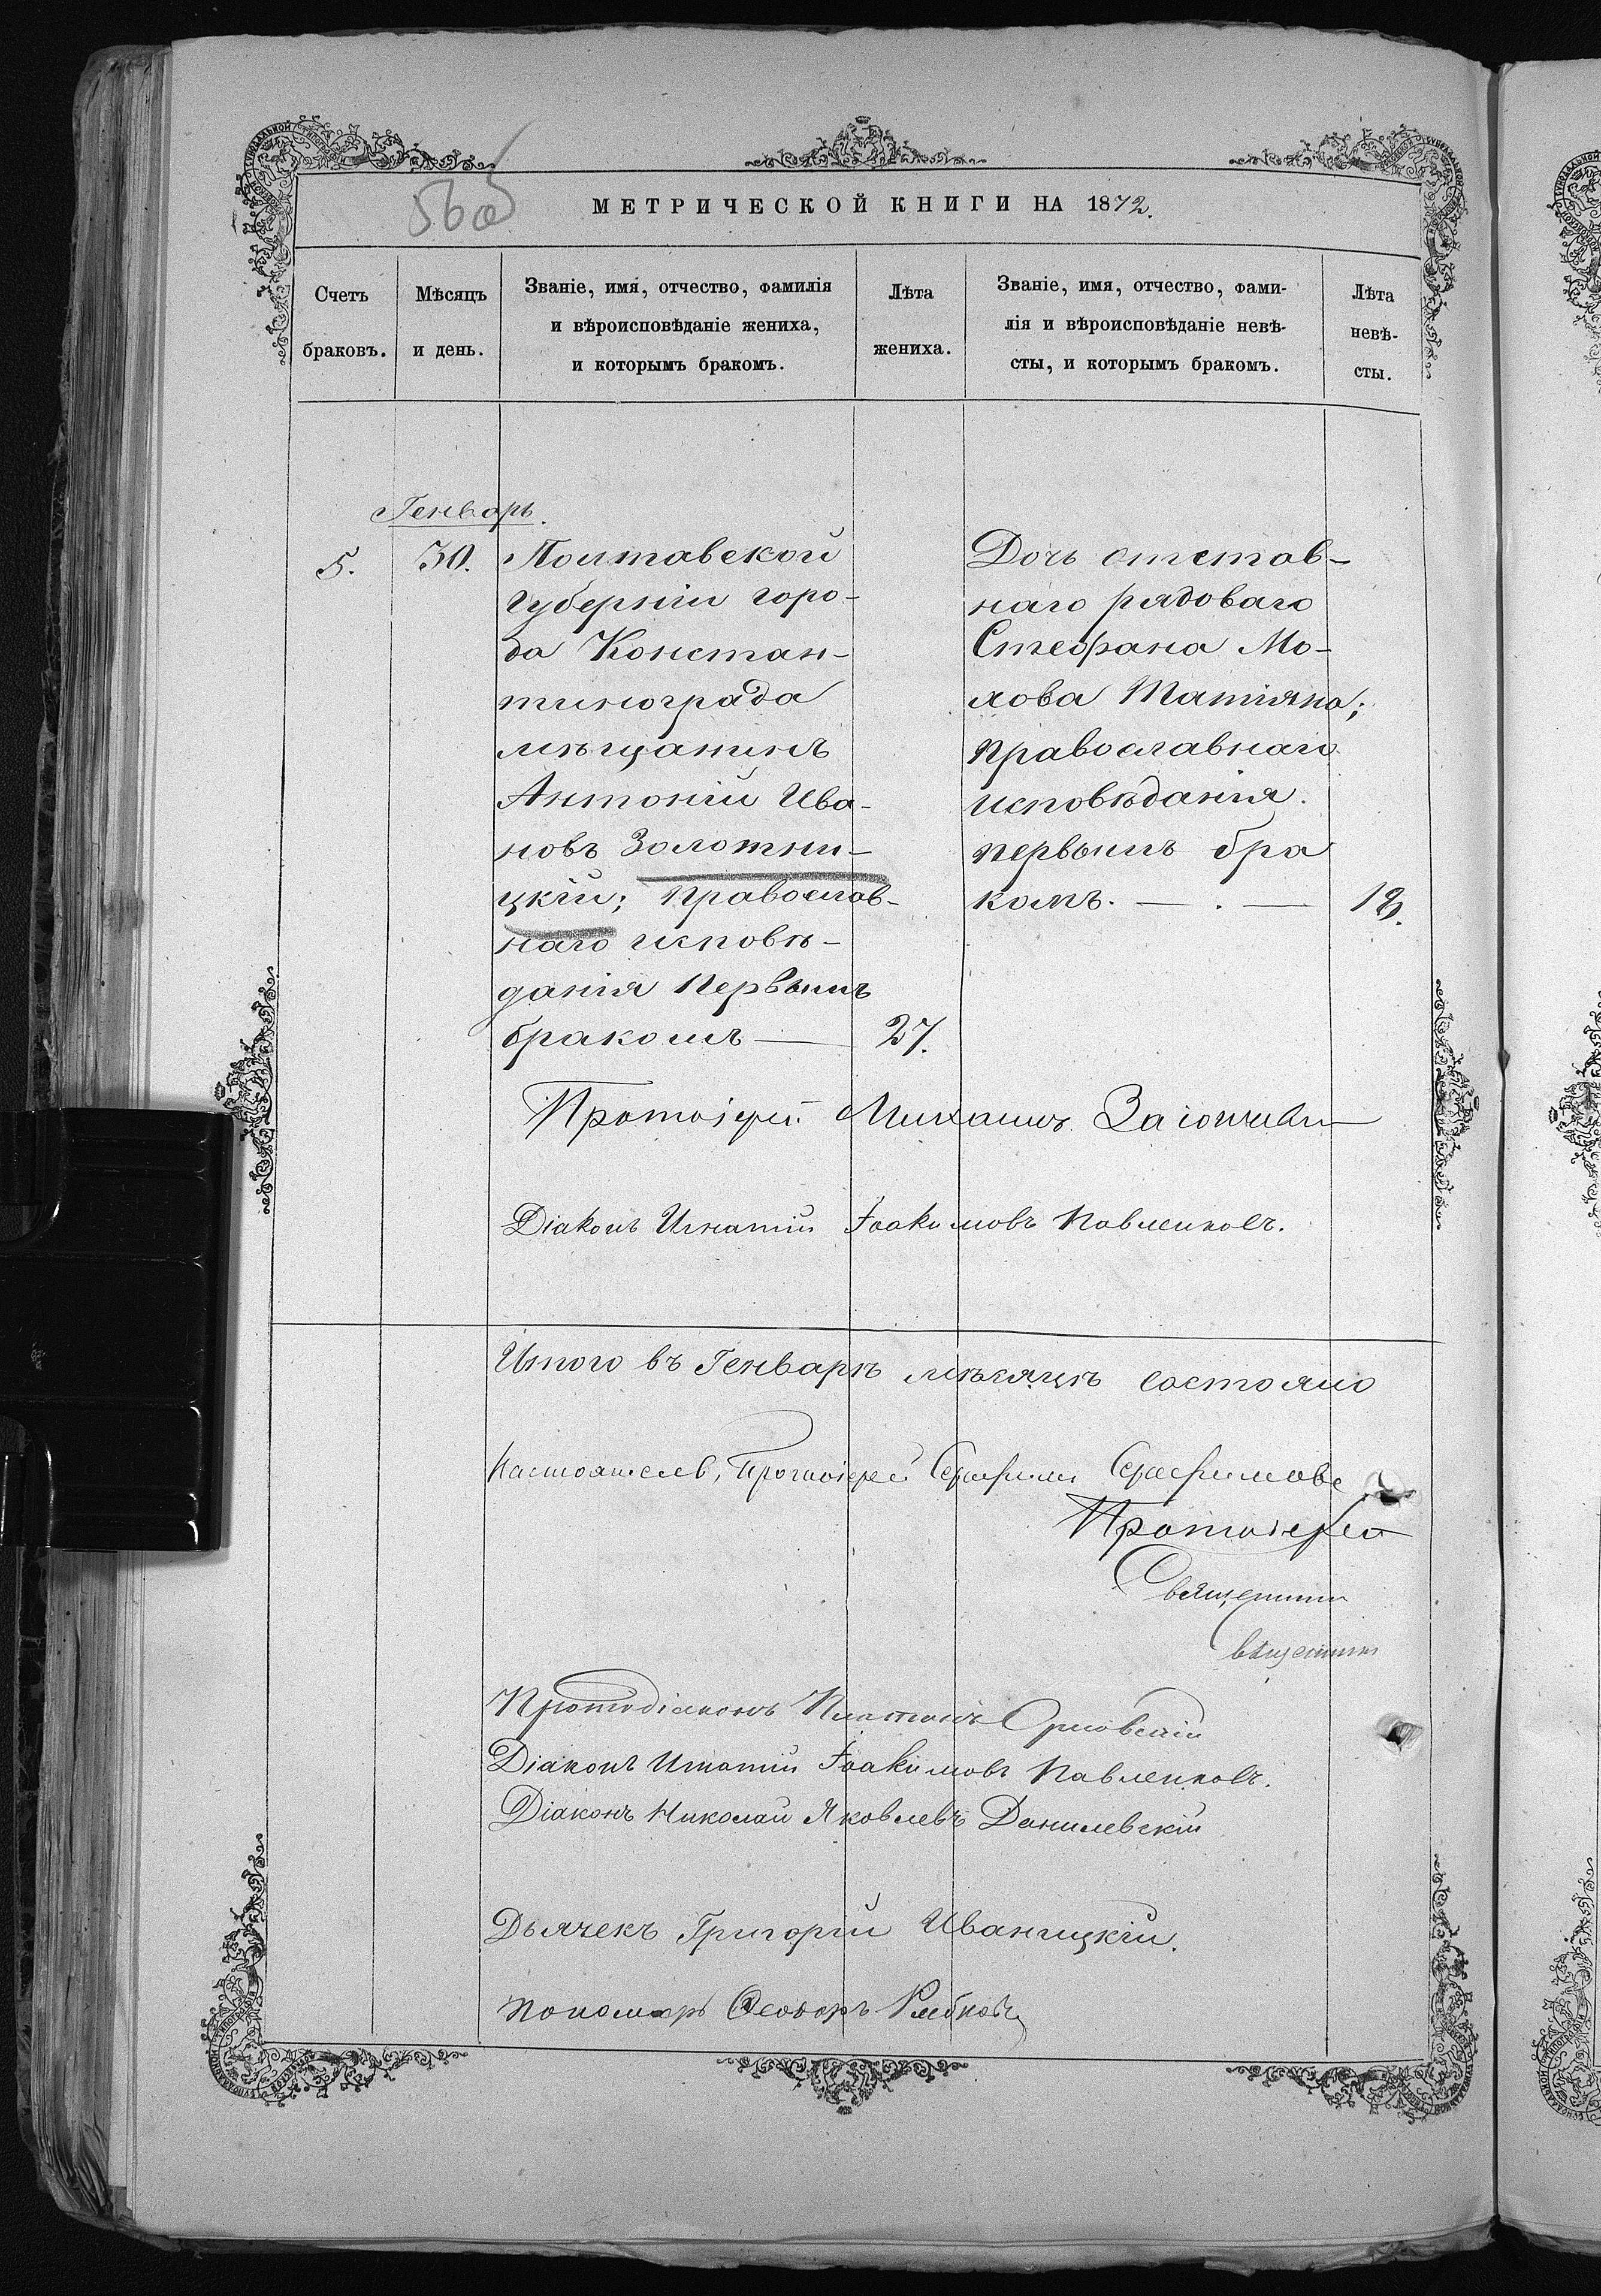 МЕТРИЧЕСКОЙ КНИГИ НА 1872.
Счетъ браковъ.
Мѣсяцъ и день.
Званіе, имя, отчество, фамилія
и вѣроисповѣданіе жениха,
и которымъ бракомъ.
Лѣта жениха.
Званіе, имя, отчество, фами-
лія и вѣроисповѣданіе невѣ-
сты, и которымъ бракомъ.
Лѣта невѣ-
сты.
Генварь.
5.
30.
Полтавской
Губерніи горо-
да Констан-
тинограда
мѣщанинъ
Антоній Ива-
новъ Золотни-
цкій; православ-
наго исповѣ-
данія первымъ
бракомъ —
27.
Дочь отстав-
наго рядоваго
Стефана Мо-
лова Татіяна;
православнаго
исповѣданія.
первымъ бра
комъ. — . —
Протоіерей Михаилъ
Діаконъ Игнатій Іоакимовъ Павленковъ.
Итого въ Генварѣ мѣсяцѣ состояло
Настоятель, Протоіерей Серафимъ Серафимовъ
Протоіерей
Священник
Священник
Протодіаконъ Платонъ Орловскій
Діаконъ Игнатій Іоакимовъ Павленковъ.
Діаконъ Николай Яковлевъ Данилевскій
Дьячекъ Григорій Иваницкій.
Пономарь Ѳеодоръ